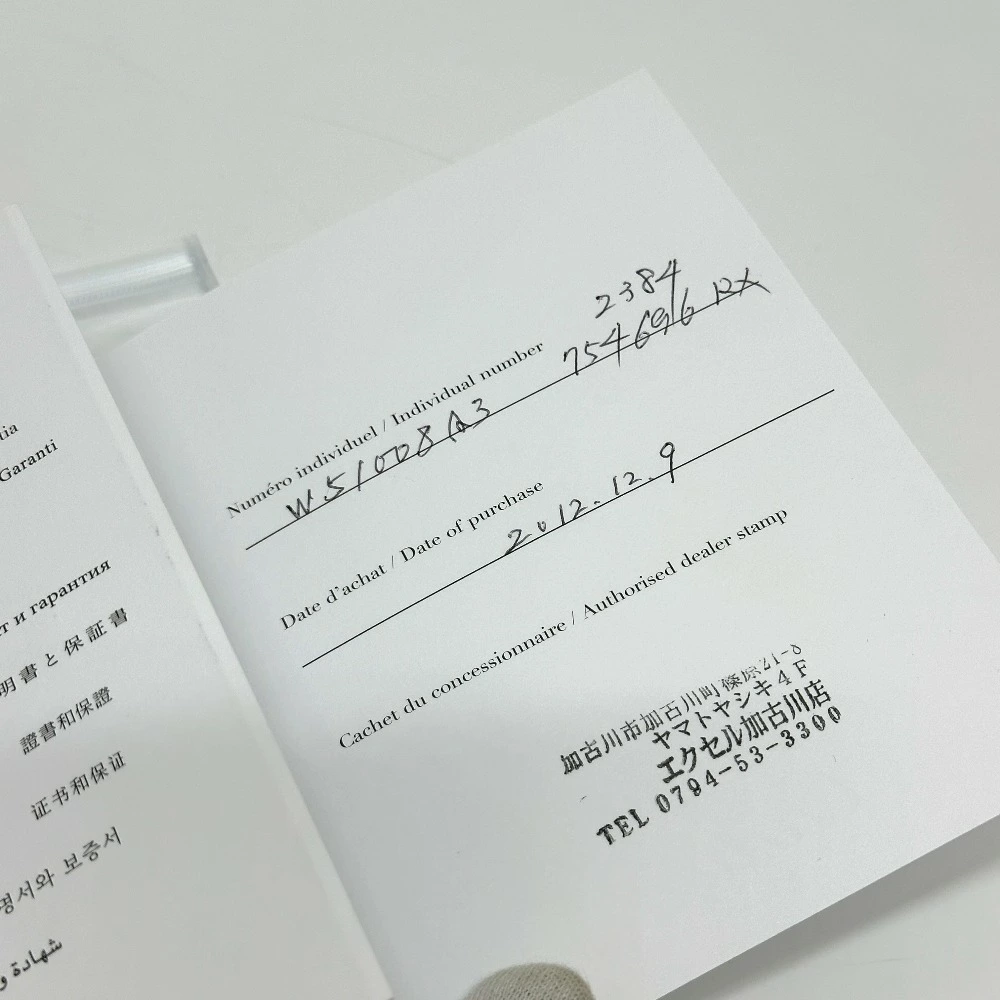 tia
Garanti
т и гарантия
明書と保証書
證書和保證
证书和保证
명서와 보증서
شهادة و
2384
Numéro individuel / Individual number
W51008A3 754696RX
Date d'achat / Date of purchase
2012.12.9
Cachet du concessionnaire / Authorised dealer stamp
加古川市加古川町篠原21-8
ヤマトヤシキ4F
エクセル加古川店
TEL 0794-53-3300